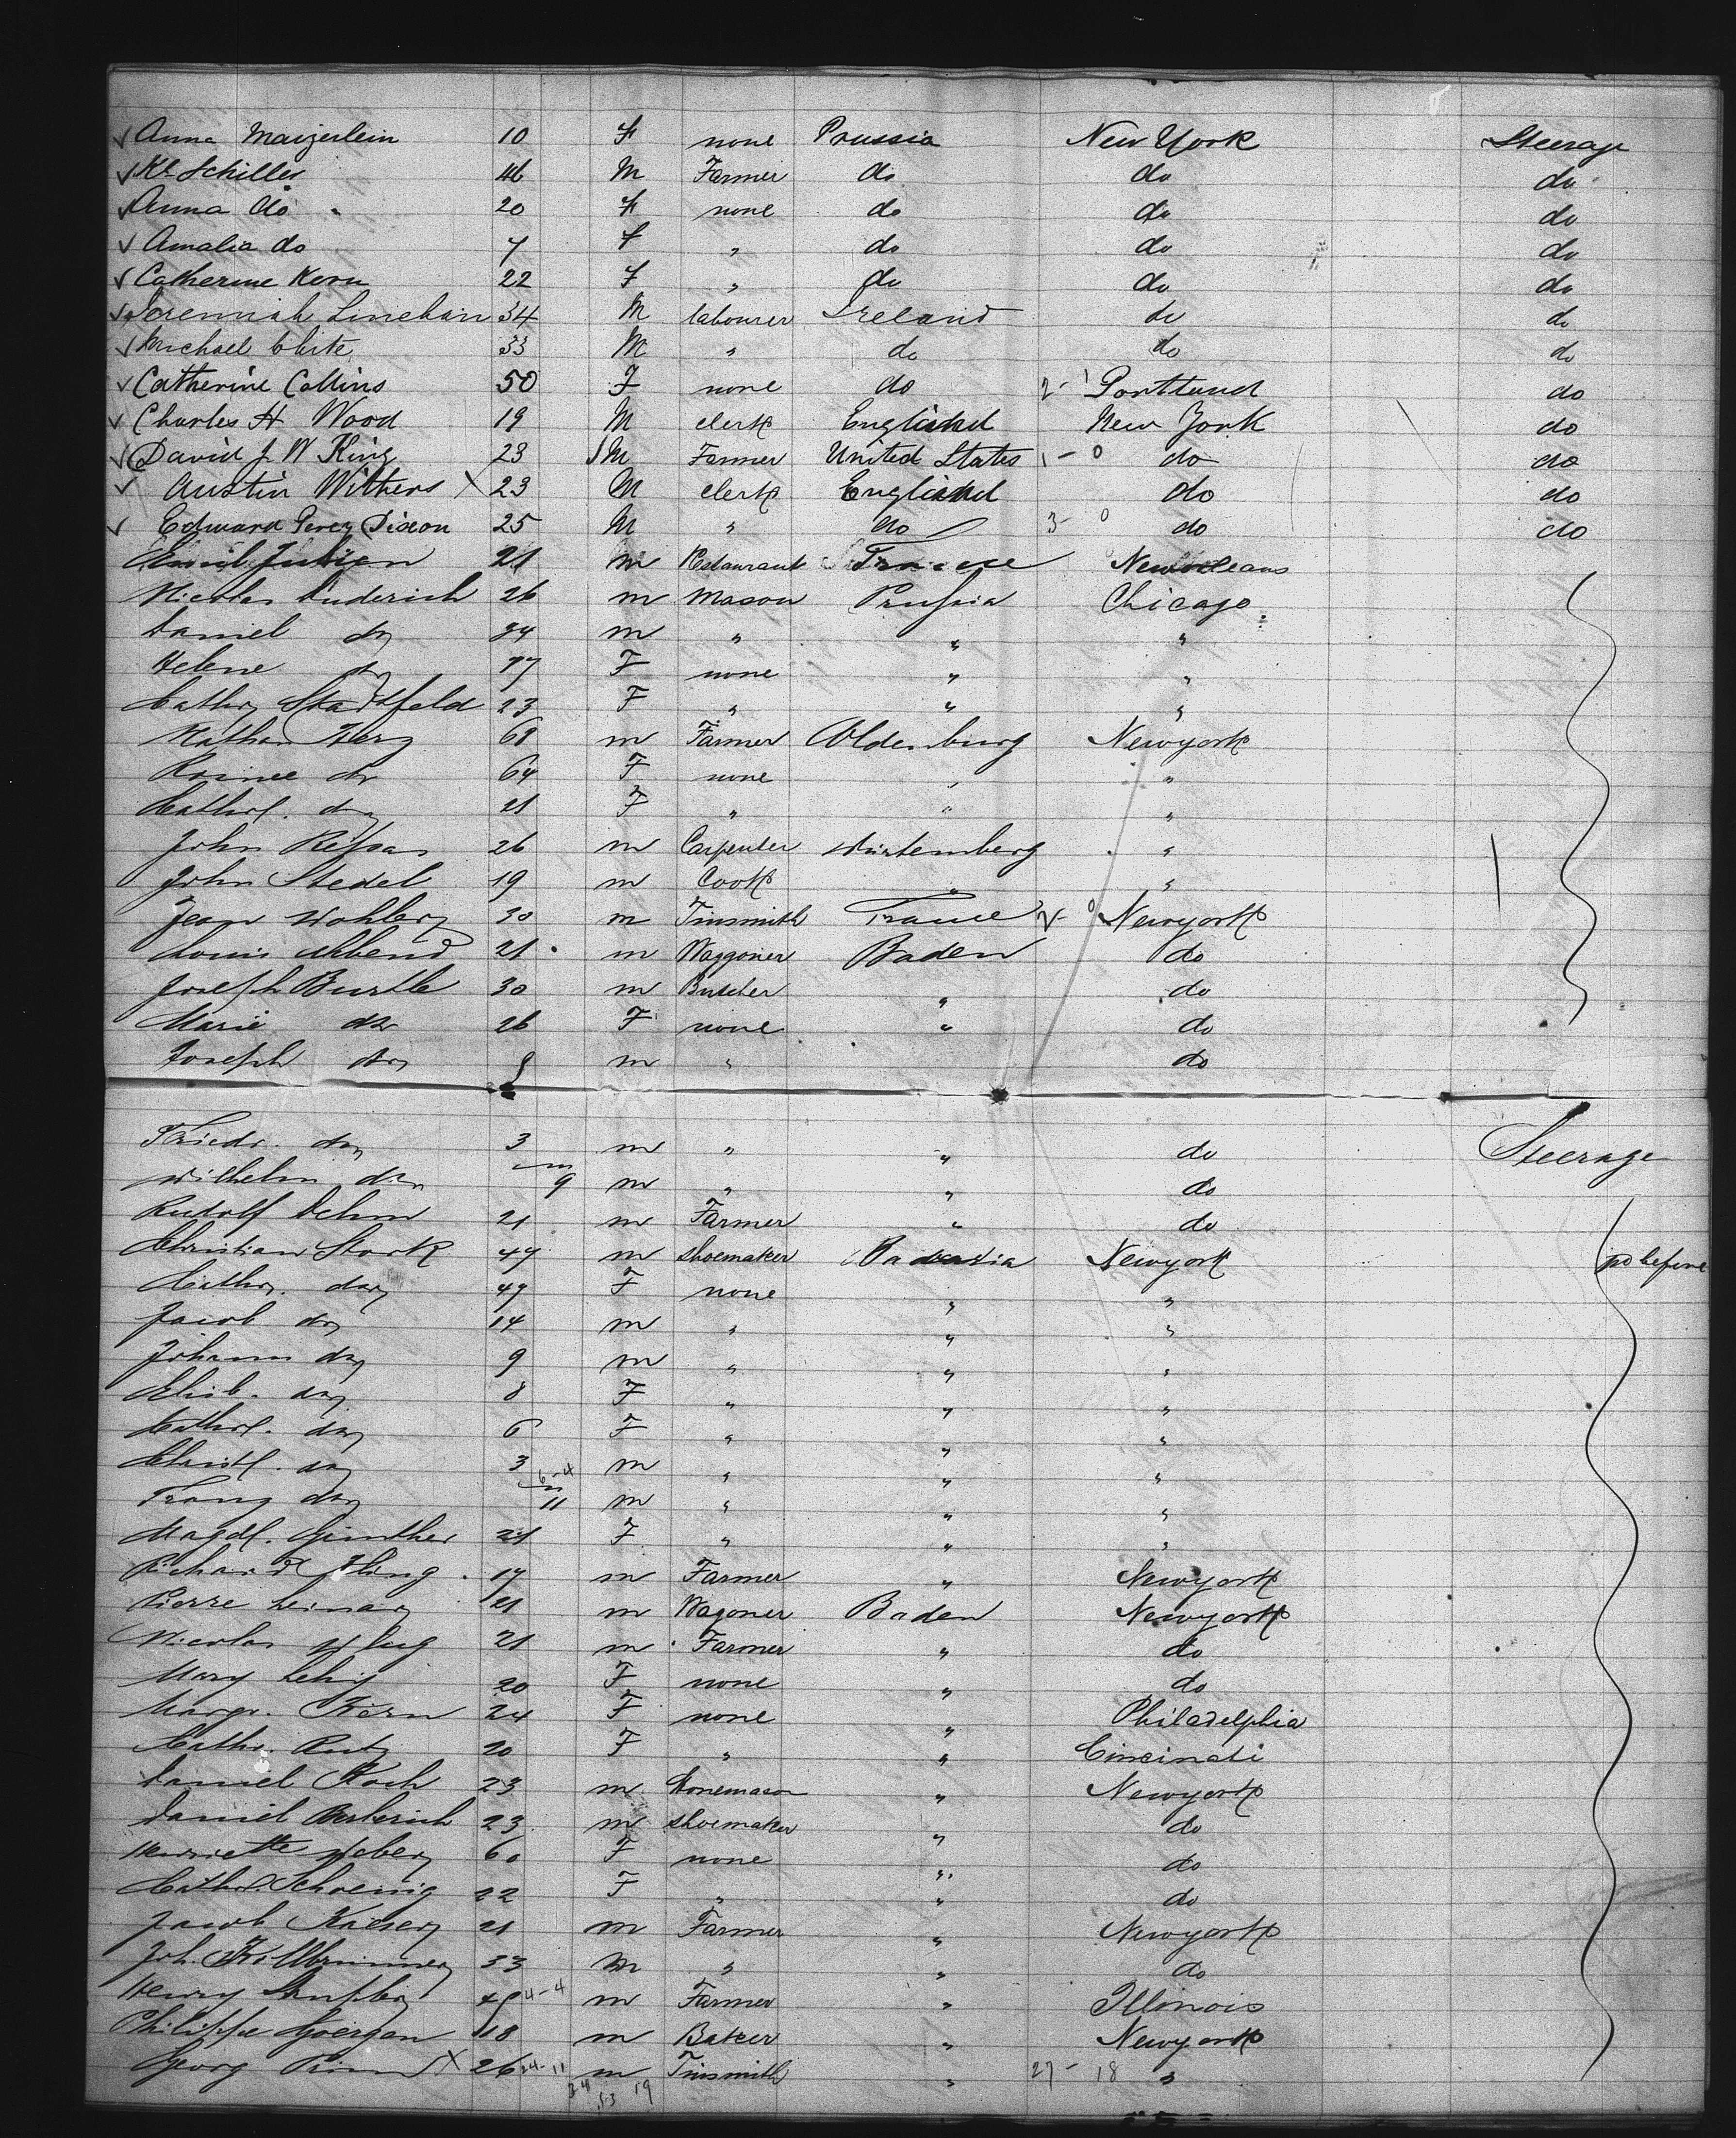 Anna Maizerlein 10 F none Prussia New York Steerage
Kl. Schiller 46 M Farmer do do do
Anna do 20 F none do do do
Amalia do 7 F " do do do
Catherine Kern 22 F " do do do
Jeremiah Linehan 34 M labourer Ireland do do
Michael White 33 M " do do do
Catherine Collins 50 F none do 2-1 Portland do
Charles H Wood 19 M clerk England New York do
David J. W King 23 M Farmer United States 1-0 do do
Austin Withers X 23 M clerk England do do
Edward Percy Dixon 25 M " do 3-0 do do
Emil Julien 21 m Restaurant France New orleans
Nicolas Luderich 26 m Mason Prussia Chicago
Daniel do 34 m " " "
Helene do 17 F none " "
Cathr. Stadtfeld 23 F " " "
Nathan Herz 61 m Farmer Oldenburg Newyork
do 64 F none " "
Cathrl. do 21 F " " "
John 26 m Carpenter Würtemberg "
John Stedel 19 m Cook " "
Jean Wohlberg 30 m Tinsmith France 2-0 Newyork
Louis Abend 21 m Waggoner Baden do
Joseph Burtle 30 m Butcher " do
Marie do 26 F none " do
Joseph do m " do
Friedr. do 3 m " " do Steerage
Wilhelm do m 9 m " " do
Rudolf Dehm 21 m Farmer " do
Christian Stork 47 m Shoemaker Newyork as before
Cathr. do 47 F none " "
Jacob do 14 m " " "
Johann do 9 m " " "
Elisb. do 8 F " " "
Cathrl. do 6 F " " "
Christl. do 3 m " " "
Franz do 6-4 m 11 m " " "
Magdl. Günther 21 F " " "
Richard Illing 17 m Farmer " Newyork
Pierre 21 m Wagoner Baden Newyork
Nicolas 21 m Farmer " do
Mary 20 F none " do
Margr. Kern 24 F none " Philadelphia
Cathr. Rutz 20 F " " Cincinati
Daniel Koch 23 m Stonemason " Newyork
Daniel Berberich 23 m Shoemaker " do
Henriette Weber 60 F none " do
Cathrl. Schoenig 22 F " " do
Jacob Kaiser 21 m Farmer " Newyork
Joh. Kollbrunner 33 m " " do
Henry 4-4 m Farmer " Illinois
Philippe Goergen 18 m Baker " Newyork
Georg X 26 24-11 m Tinsmith " 27-18 "
34 13 19